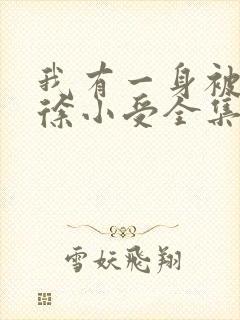 我有一身被
徐小受全集
雪妖飛翔